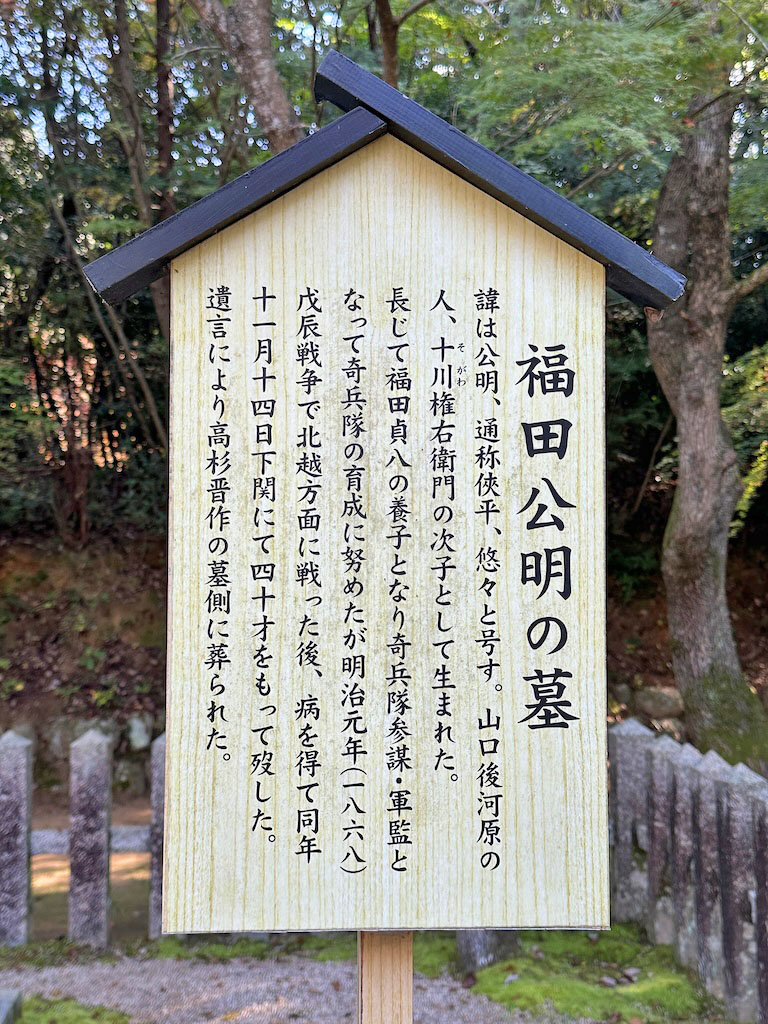 福田公明の墓
諱は公明、通称俠平、悠々と号す。山口後河原の
人、十川権右衛門の次子として生まれた。
そがわ
長じて福田貞八の養子となり奇兵隊参謀・軍監と
なって奇兵隊の育成に努めたが明治元年(一八六八)
戊辰戦争で北越方面に戦った後、病を得て同年
十一月十四日下関にて四十才をもって歿した。
遺言により高杉晋作の墓側に葬られた。